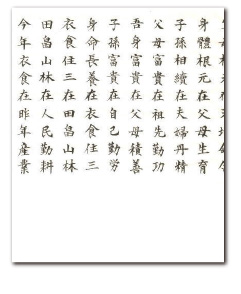 身體根元在父母生育
子孫相續在夫婦丹精
父母富貴在祖先勤功
吾身富貴在父母積善
子孫富貴在自己勤勞
身命長養在衣食住三
衣食住三在田畠山林
田畠山林在人民勤耕
今年衣食在昨年産業